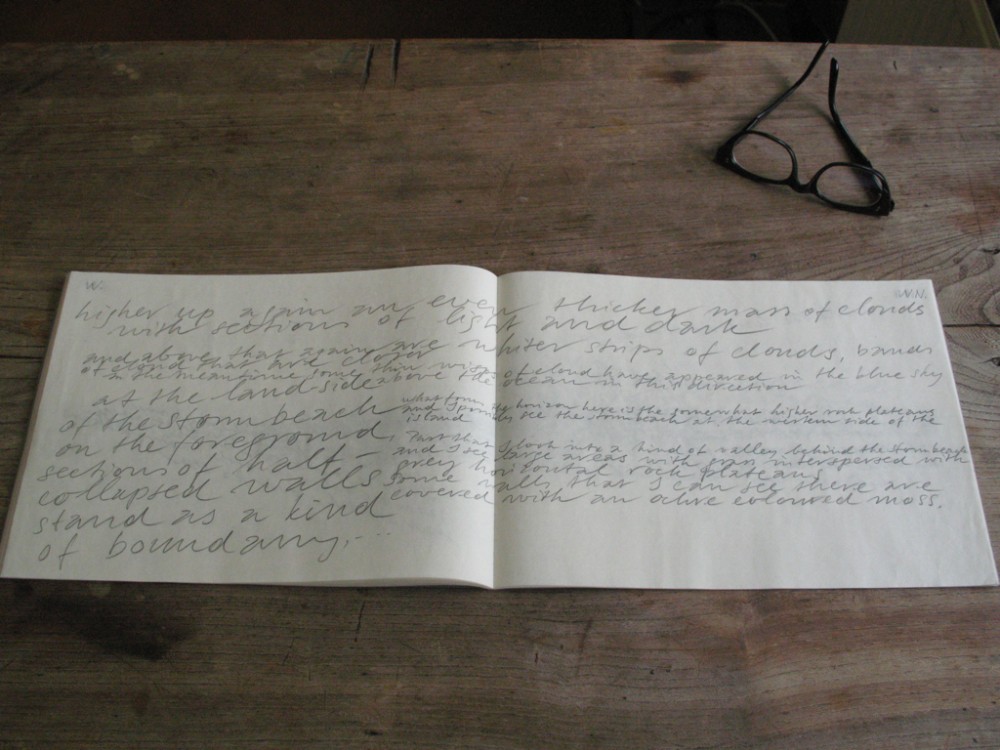 W.
N.N.
higher up again an even thicker mass of clouds
with sections of light and dark
and above that again are whiter strips of clouds, bands
of cloud that are closer
in the meantime some thin wisps of cloud have appeared in the blue sky
at the land-side above the ocean in this direction
of the storm beach
on the foreground,
sections of half-
collapsed walls
stand as a kind
of boundary,...
what forms my horizon here is the somewhat higher rock plateaus
and ponds, see the storm beach at the western side of the
island
Past that I look into a kind of valley behind the storm beach
and I see large areas with grass interspersed with
grey horizontal rock plateaus,
some walls that I can see there are
covered with an olive coloured mass.